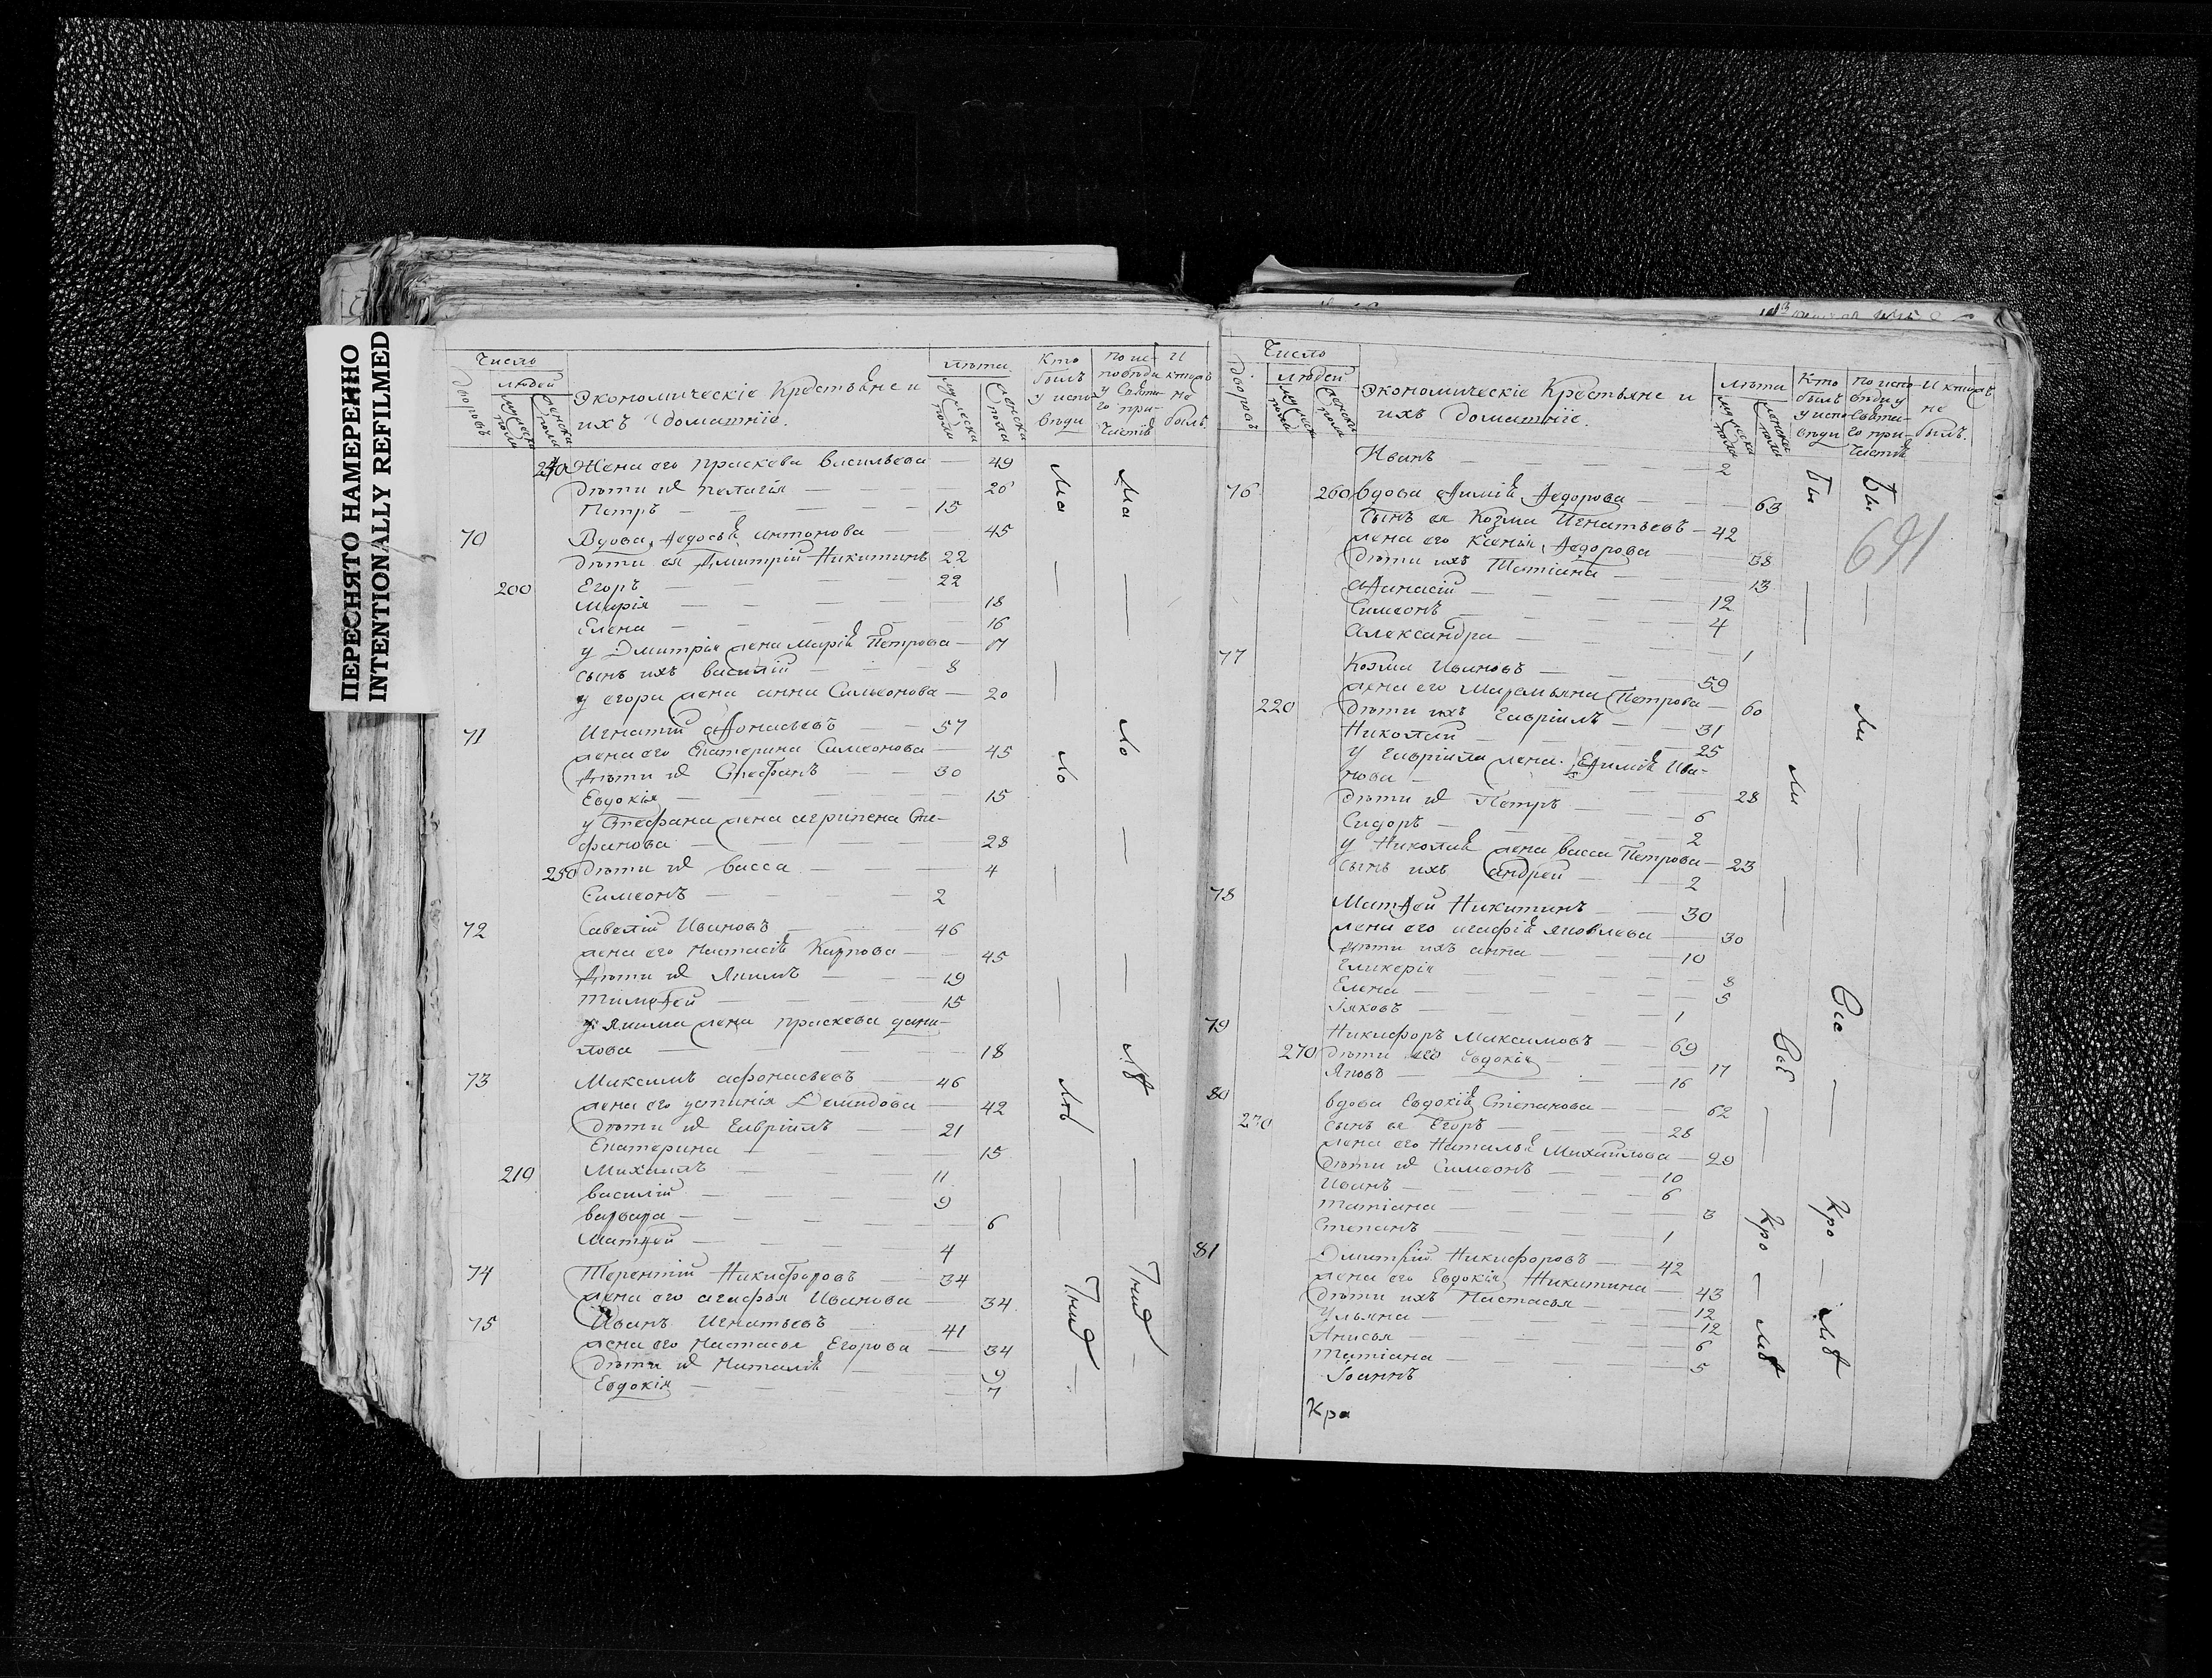 ПЕРЕСНЯТО НАМЕРЕННО
INTENTIONALLY REFILMED
Число
людей
дворовъ
Экономическіе Крестьяне и
ихъ домашніе.
лѣта
Кто былъ у исповѣди
240 Жена его праскева васильева — 49
Дѣти их пелагія — 26
Петръ — 15
70 Вдова Ѳедосья антонова — 45
Дѣти ея Дмитрій Никитинъ 22
200 Егоръ — 22
Марія — 18
Елена — 16
у Дмитрия жена Марія Петрова —
сынъ ихъ василій — 8
у егора жена анна Симеонова — 20
71 Игнатій аѲонасьевъ — 57
жена его Екатерина Симеонова — 45
Дѣти их Стефанъ — 30
Евдокія — 15
у Стефана жена агрипена Сте-
фанова — 28
250 Дѣти их васса — 4
Симеонъ — 2
72 Савелій Ивановъ — 46
жена его настасія Карпова — 45
Дѣти их Якимъ — 19
ТимоѲей — 15
у Якима жена праскева дани-
лова — 18
73 Максимъ афонасьевъ — 46
жена его устинія Демидова — 42
Дѣти их Гавріилъ — 21
Екатерина — 15
210 Михаилъ — 11
василій — 9
варвара — 6
МатѲей — 4
74 Терентій Никифоровъ — 34
жена его агафья Иванова — 34
75 Иванъ Игнатьевъ — 41
жена его настасья Егорова — 34
Дѣти их Наталія — 9
Евдокія — 7
Число
людей
дворовъ
Экономическіе Крестьяне и
ихъ домашніе.
лѣта
Кто былъ у исповѣди
691
Иванъ — 2
76 260 вдова Ѳедорова — 63
Сынъ ея Козма Игнатьевъ — 42
жена его Ксенія Ѳедорова — 38
Дѣти ихъ Татіана — 13
аѲанасій — 12
Симеонъ — 4
Александра — 1
77 Козма Ивановъ — 59
жена его Маремьяна Петрова — 60
220 Дѣти ихъ Гавріилъ — 31
Николай — 25
у Гавріила жена Ива-
нова — 28
Дѣти их Петръ — 6
Сидоръ — 2
у Николая жена васса Петрова — 23
сынъ ихъ андрей — 2
78 МатѲей Никитинъ — 30
жена его агафія яковлева — 30
Дѣти ихъ анна — 10
Гликерія — 8
Елена — 5
Іяковъ — 1
79 Никифоръ Максимовъ — 69
270 Дѣти его Евдокія — 17
Яковъ — 16
80 вдова Евдокія Степанова — 62
сынъ ея Егоръ — 28
жена его Наталья Михайлова — 29
Дѣти их Симеонъ — 10
Иванъ — 6
татіана — 3
Степанъ — 1
81 Дмитрій Никифоровъ — 42
жена его Евдокія Никитина — 43
Дѣти ихъ Настасья — 12
Ульяна — 12
Анисья — 6
татіана — 5
Іоаннъ
Кра